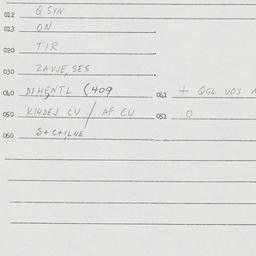 012 Q SYN
013 ON
020 TIR
030 ZAVJE, SES
040 DIHENTL (409 041 + QGL VOS
050 KI4DEJ CU / AF CU 051 O
060 S+C+ILNE